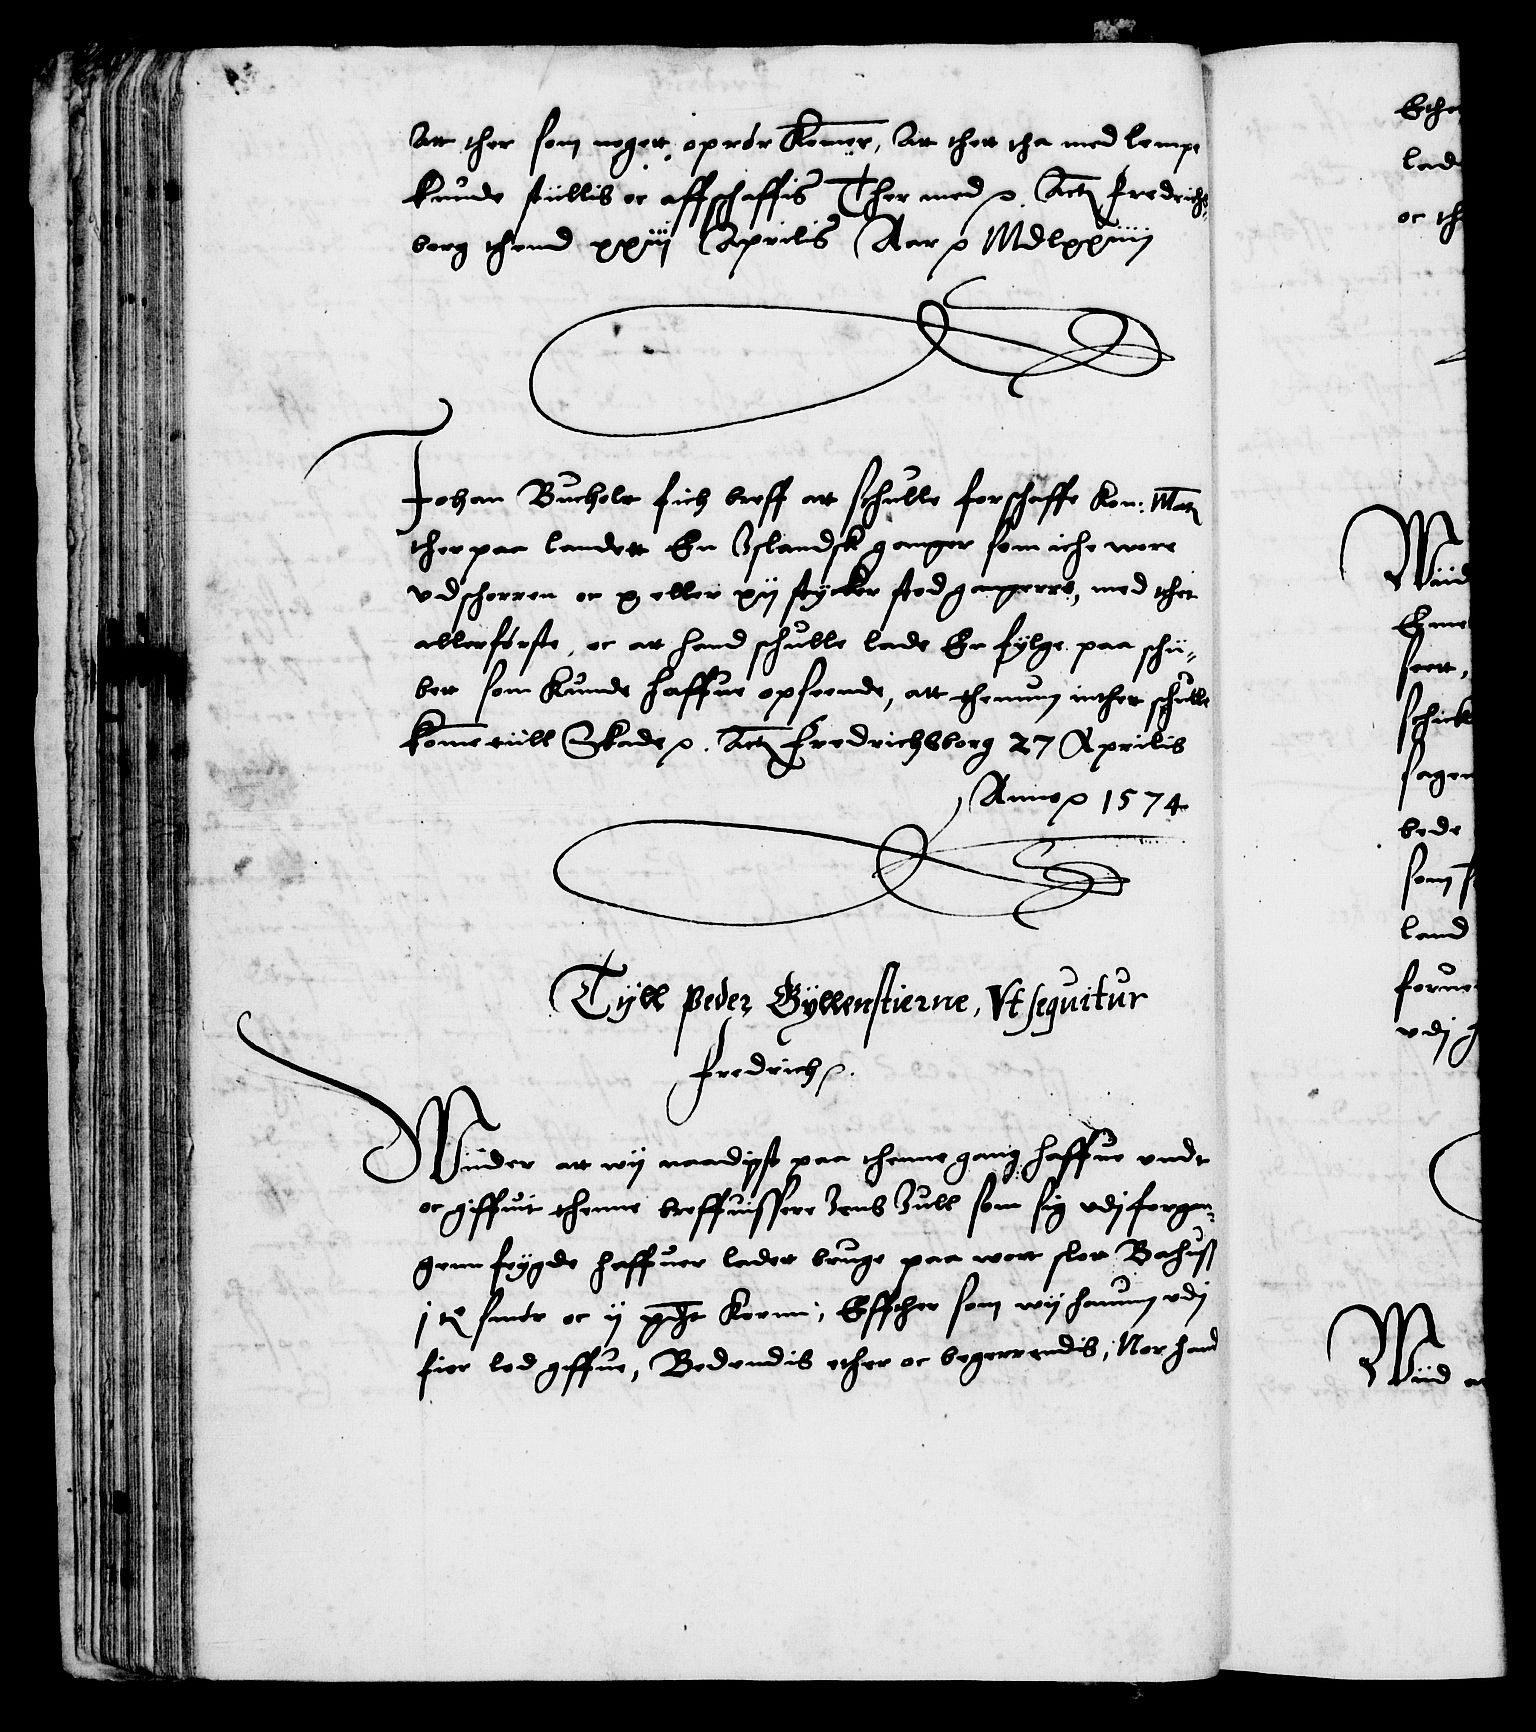 Att ther som noget oprør komer, Att thet tha med lempe
kunde stillis oc affschaffis Ther med &c. Actz Fredrichs-
borg thend xxiij Aprilis Aar &c MDlxxiiij
Johan Bucholt fich breff att schulle forschaffe Kon: Matz
ther paa landett En Islandsk ganger som iche were
vdschorren oc x eller xij stycker stod gangerre, med thet
allerførste, oc at hand schulle lade En følge paa schi-
bet som kunde haffue opseende, att thenum inthet schulle
kome till Skade &c. Actz Fredrichsborg 27 Aprilis
Anno &c 1574
Tyll Peder Gyllenstierne, Vt sequitur
Fredrich &c.
Wiider att wij naadigst paa thenne gang haffue vndt
oc giffuit thenne breffuissere Jens Jull som sig vdj forgan-
genn feygde haffuer ladet bruge paa wort slot Bahuss
j smør oc ij korn, Effther som wij hanum vdj
fior lod giffue, Bedendis ether oc begerrendis, Nor hand
Ethe
lad
oc th
Wiid
Enne
seert,
schick
sagen
bede
som
land
forne
vdj
Wiid at